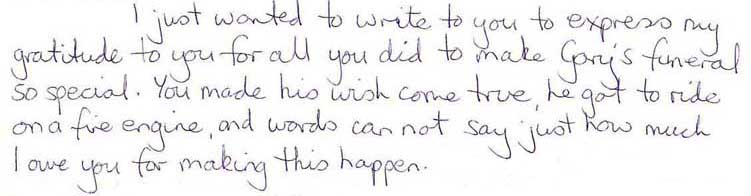 I just wanted to write to you to express my
gratitude to you for all you did to make Gary's funeral
so special. You made his wish come true, he got to ride
on a fire engine, and words can not say just how much
I owe you for making this happen.